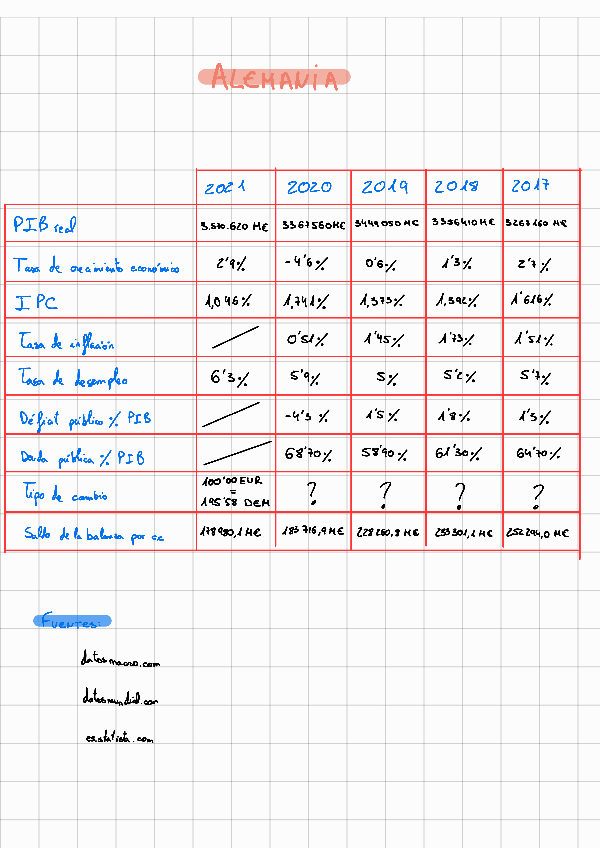 ALEMANIA
2021 2020 2019 2018 2017
PIB real 3.570.620 M€ 3367560M€ 3449050M€ 3356410M€ 3267160 M€
Tasa de crecimiento económico 2'9% -4'6% 0'6% 1'3% 2'7%
IPC 1,046% 1,741% 1,373% 1,392% 1'616%
Tasa de inflación 0'51% 1'45% 1'73% 1'51%
Tasa de desempleo 6'3% 5'9% 5% 5'2% 5'7%
Déficit público % PIB -4'3 % 1'5% 1'8% 1'3%
Deuda pública % PIB 68'70% 58'90% 61'30% 64'70%
Tipo de cambio 100'00 EUR = 195'58 DEM ? ? ? ?
Saldo de la balanza por cc 178980,1 M€ 183716,9M€ 228260,8 M€ 253301,2 M€ 252294,0 M€
FUENTES:
datosmacro.com
datosmundial.com
es.statista.com